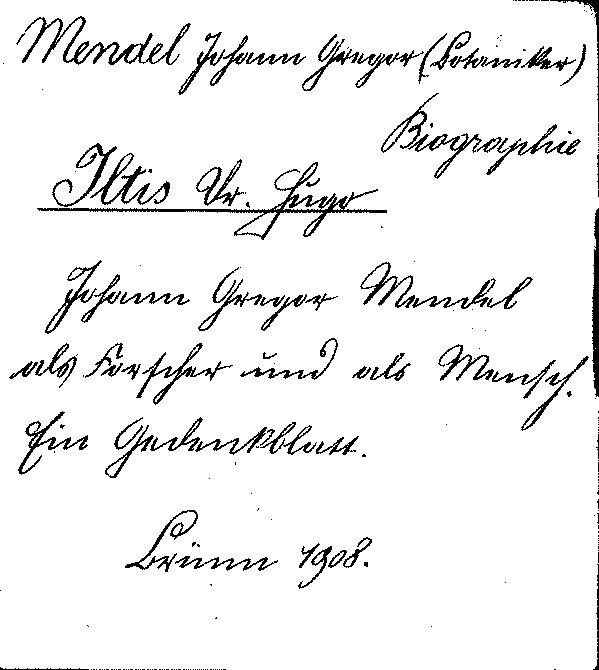 Mendel Johann Gregor (Botaniker)
Biographie
Iltis Dr. Hugo
Johann Gregor Mendel
als Forscher und als Mensch.
Ein Gedenkblatt.
Brünn 1908.